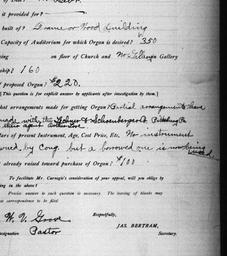 it provided for?
built of? Frame or Wood Building
Capacity of Auditorium for which Organ is desired? 350
on floor of Church and No Gallery
ship? 160
proposed Organ? $220.
[This question is for explicit answer by applicants after investigation by them.]
that arrangements made for getting Organ? Partial arrangements have
made with the & Schoenberger Co Pittsburg Pa
their agent
lars of present instrument, Age, Cost Price, Etc. No instrument
owned by Cong. but a borrowed one is now being
used
already raised toward purchase of Organ? $100
To facilitate Mr. Carnegie's consideration of your appeal, will you oblige by
ing in the above?
Precise answer to each question is necessary. The leaving of blanks may
correspondence to be filed.
Respectfully,
W. V. Grove
JAS. BERTRAM,
signation Pastor Secretary.